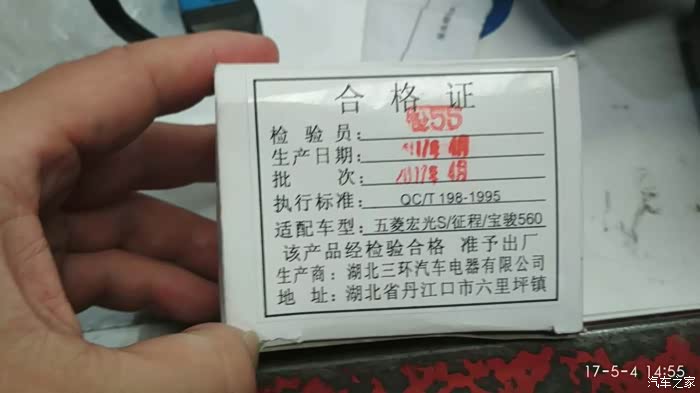 合格证
检验员：
生产日期： 17年 4月
批次： 2017年 4月
执行标准： QC/T 198-1995
适配车型：五菱宏光S/征程/宝骏560
该产品经检验合格 准予出厂
生产商：湖北三环汽车电器有限公司
地址：湖北省丹江口市六里坪镇
17-5-4 14:55
汽车之家